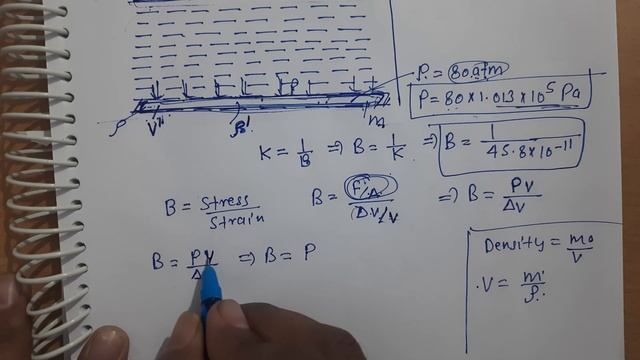 P = 80 atm
P = 80 × 1.013 × 10⁵ Pa
P
ρ V" ρ'
K = 1/B ⇒ B = 1/K ⇒ B = 1/45.8×10⁻¹¹
B = Stress/Strain B = F/A/ΔV/V ⇒ B = PV/ΔV
B = PV/Δ ⇒ B = P
Density = mo/V
V = m'/ρ.